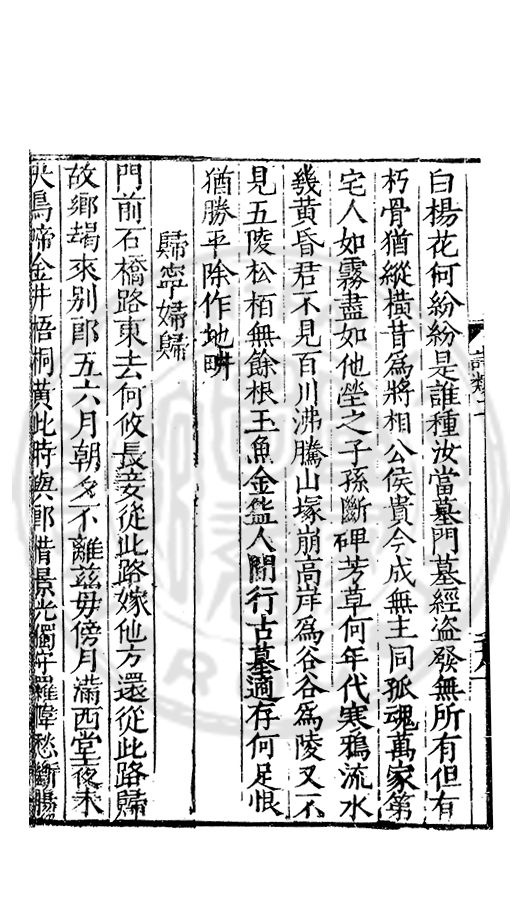 白楊花何紛紛是誰種汝當墓門墓經盜發無所有但有
朽骨猶縱橫昔爲將相公侯貴今成無主同孤魂萬家第
宅人如霧盡如他塋之子孫斷碑芳草何年代寒鴉流水
幾黃昏君不見百川沸騰山塚崩高岸爲谷谷爲陵又不
見五陵松栢無餘根玉魚金盌人間行古墓適存何足恨
猶勝平除作地畊
歸寧婦歸
門前石橋路東去何攸長妾從此路嫁他方還從此路歸
故鄉朅來別郎五六月朝夕不離茲毋傍月滿西堂夜未
烏啼金井梧桐黃此時與郎惜景光獨守羅幃愁斷腸